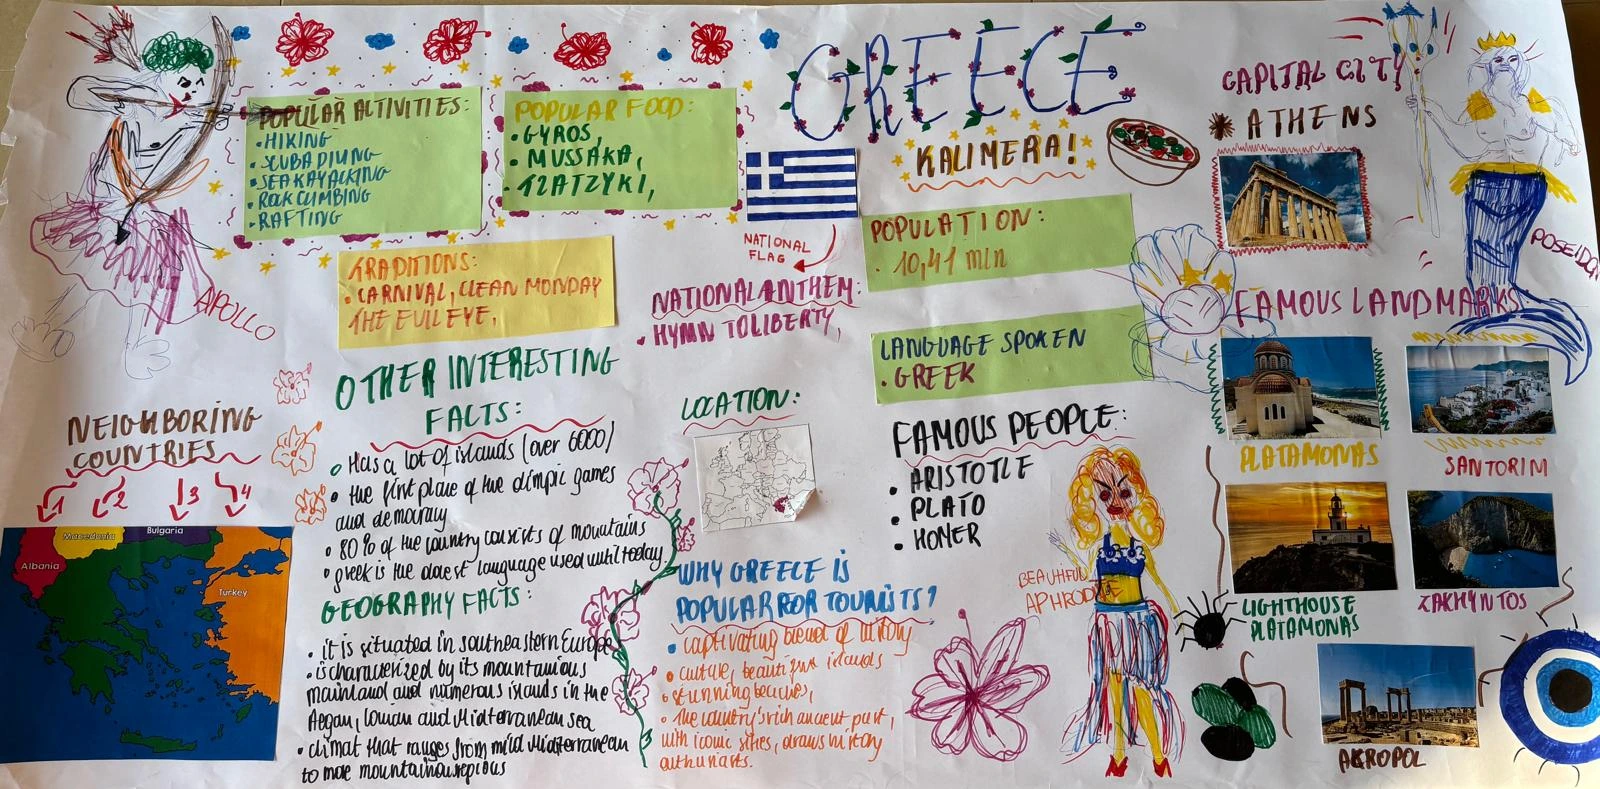 GREECE
KALIMERA!
POPULAR ACTIVITIES:
• HIKING
• SCUBA DIVING
• SEA KAYACKING
• ROCK CLIMBING
• RAFTING
POPULAR FOOD:
• GYROS,
• MUSSAKA,
• TZATZYKI,
APOLLO
TRADITIONS:
• CARNIVAL, CLEAN MONDAY
THE EVIL EYE,
NATIONAL
FLAG
NATIONAL ANTHEM:
• HYMN TO LIBERTY,
POPULATION:
• 10,41 mln
LANGUAGE SPOKEN
• GREEK
CAPITAL CITY
ATHENS
POSEIDON
FAMOUS LANDMARKS:
PLATAMONAS
SANTORIM
LIGHTHOUSE
PLATAMONAS
ZAKHYNTOS
AKROPOL
NEIGHBORING
COUNTRIES
1 2 3 4
Albania
Macedonia
Bulgaria
Turkey
OTHER INTERESTING
FACTS:
• Has a lot of islands (over 6000)
• the first place of the olimpic games
and democracy
• 80% of the country consists of mountains
• greek is the oldest language used until today
GEOGRAPHY FACTS:
• it is situated in southeastern Europe
• is characterized by its mountainous
mainland and numerous islands in the
Aegan, Ionian and Miditerranean sea
• climat that ranges from mild Miditerranean
to more mountainous
LOCATION:
WHY GREECE IS
POPULAR FOR TOURISTS?
• captivating blend of history
• culture, beautiful islands
• stunning beaches,
• The country's rich ancient past,
with iconic sites, draws history
FAMOUS PEOPLE:
• ARISTOTLE
• PLATO
• HOMER
BEAUTIFUL
APHRODITE